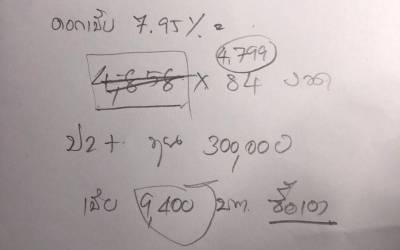 ดอกเบี้ย 7.95%
4,799
4,858 x 84 งวด
ป2+ ทุน 300,000
เบี้ย 9,400 บาท ซื้อเอง